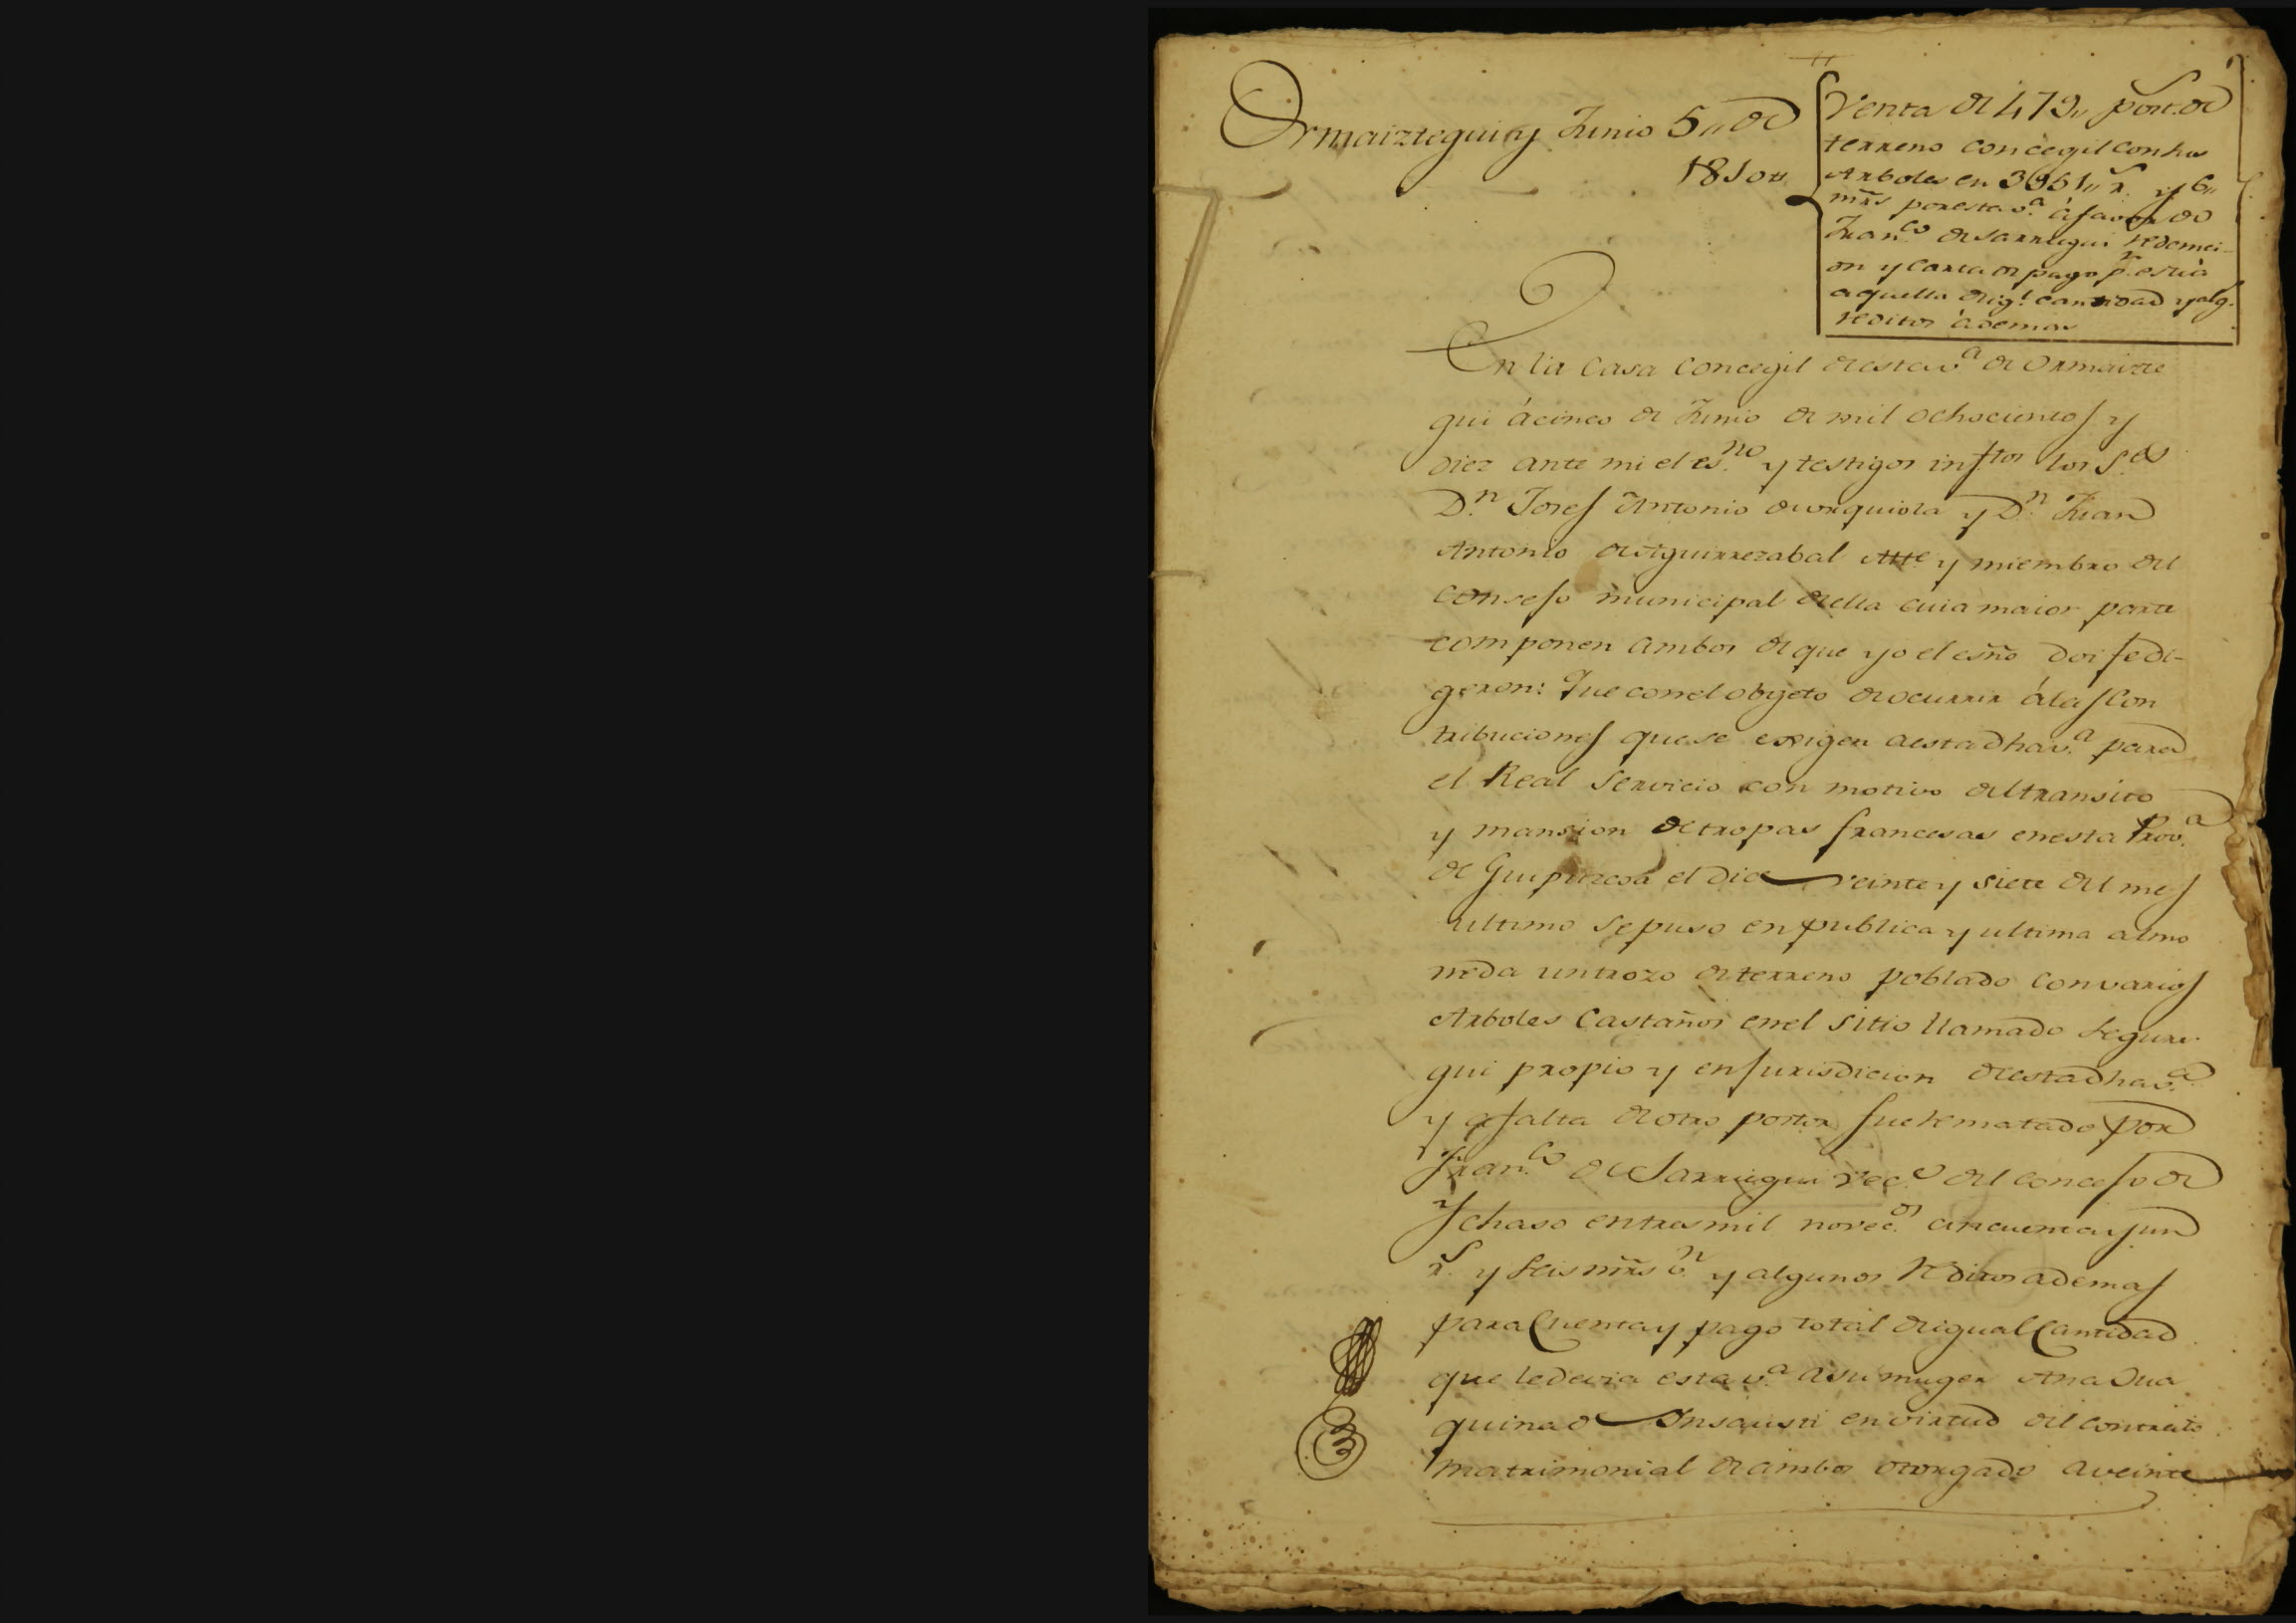 Ormaiztegui y Junio 5,, de
1810,,
Venta de 479,, post. de
terreno concegil con sus
Arboles en 3951,, r.s y 6,,
mrs̃ por esta v.a á favor de
Fran.co de Sarriegui redemci-
on y Carta de pago p.r este á
aquella de ig.l cantidad y alg.
reditos ádemas
En la Casa Concegil de esta v.a de Ormaizte
gui á cinco de Junio de mil ochocientos y
diez ante mi el es.no y testigos inftos los S.es
D.n Josef Antonio de Urquiola y D.n Juan
Antonio de Aguirrezabal Alle y miembro del
Consejo municipal de ella cuia maior parte
componen ambos de que yo el esño doi fe di-
geron: Que con el objeto de ocurrir á las Con
tribuciones que se exigen a esta dha v.a para
el Real Servicio con motivo del transito
y mansion de tropas francesas en esta Prov.a
de Guipuzcoa el dia veinte y siete del mes
ultimo se puso en publica y ultima almo
neda un trozo de terreno poblado con varios
Arboles Castaños en el sitio llamado Segure-
gui propio y en jurisdicion de esta dha v.a
y a falta de otro postor fue rematado por
Fran.co de Sarriegui vec.o del concejo de
Ychaso en tres mil novec.os cincuenta y un
r.s y seis mrs̃ v.n y algunos reditos ademas
para Cuenta y pago total de igual Cantidad
que le devia esta v.a a su muger Ana Jua
quina de Insausti en virtud del contrato
matrimonial de ambos otorgado a veinte